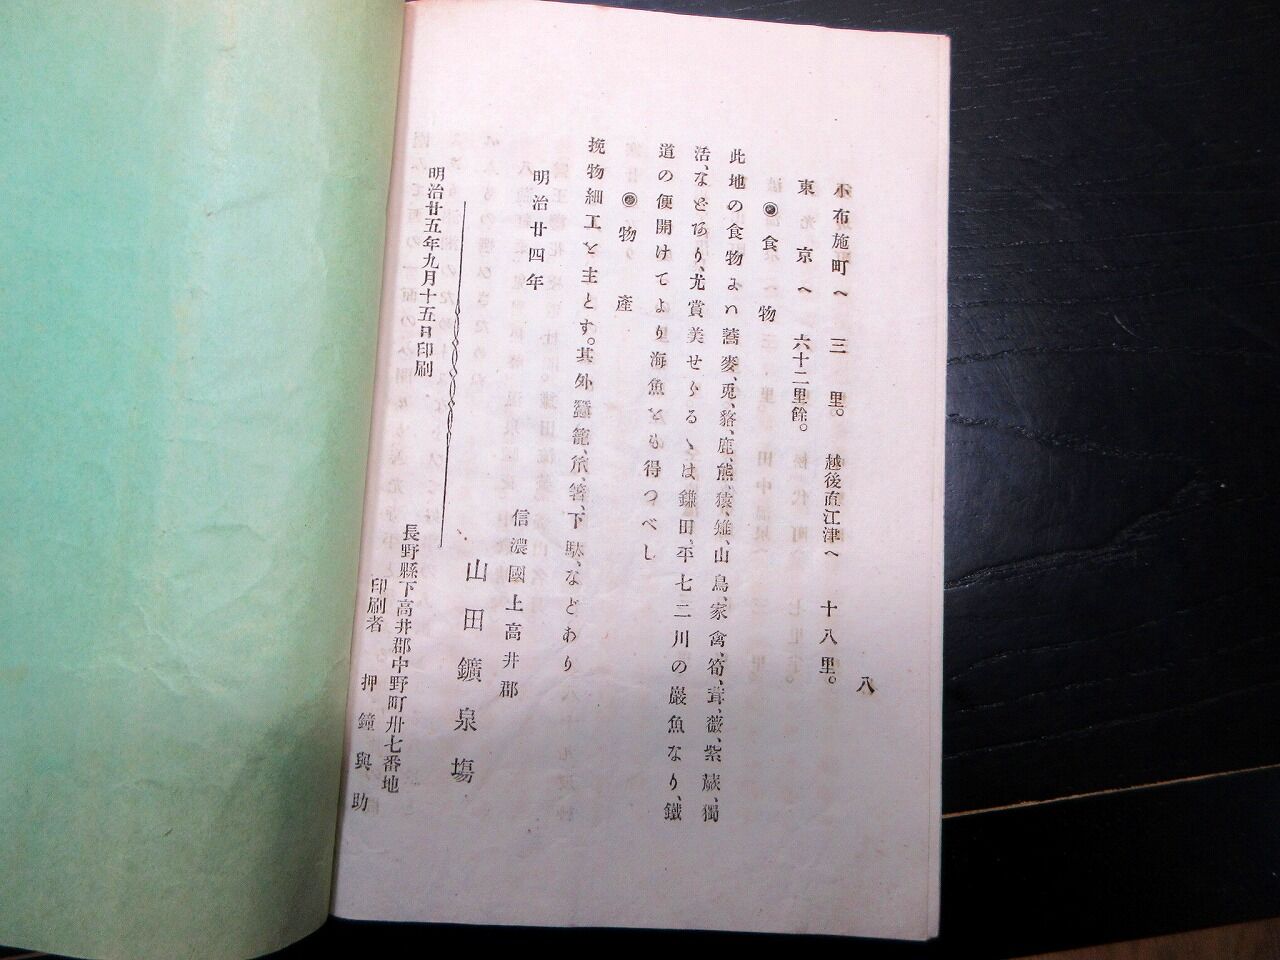 八
小布施町へ 三 里。 越後直江津へ 十八里。
東 京 へ 六十二里餘。
◉食 物
此地の食物には蕎麥、兎、貉、鹿、熊、猿、雉、山鳥、家禽、筍、茸、薇、紫蕨、獨
活、などあり、尤賞美せらるゝは鎌田、平七二川の巖魚なり、鐵
道の便開けてより海魚とも得つべし
◉物 產
挽物細工を主とす。其外蠶籠、笊、箸、下駄、などあり
明治廿四年
信濃國上高井郡
山田鑛泉塲
明治廿五年九月十五日印刷
長野縣下高井郡中野町卅七番地
印刷者 押鐘與助